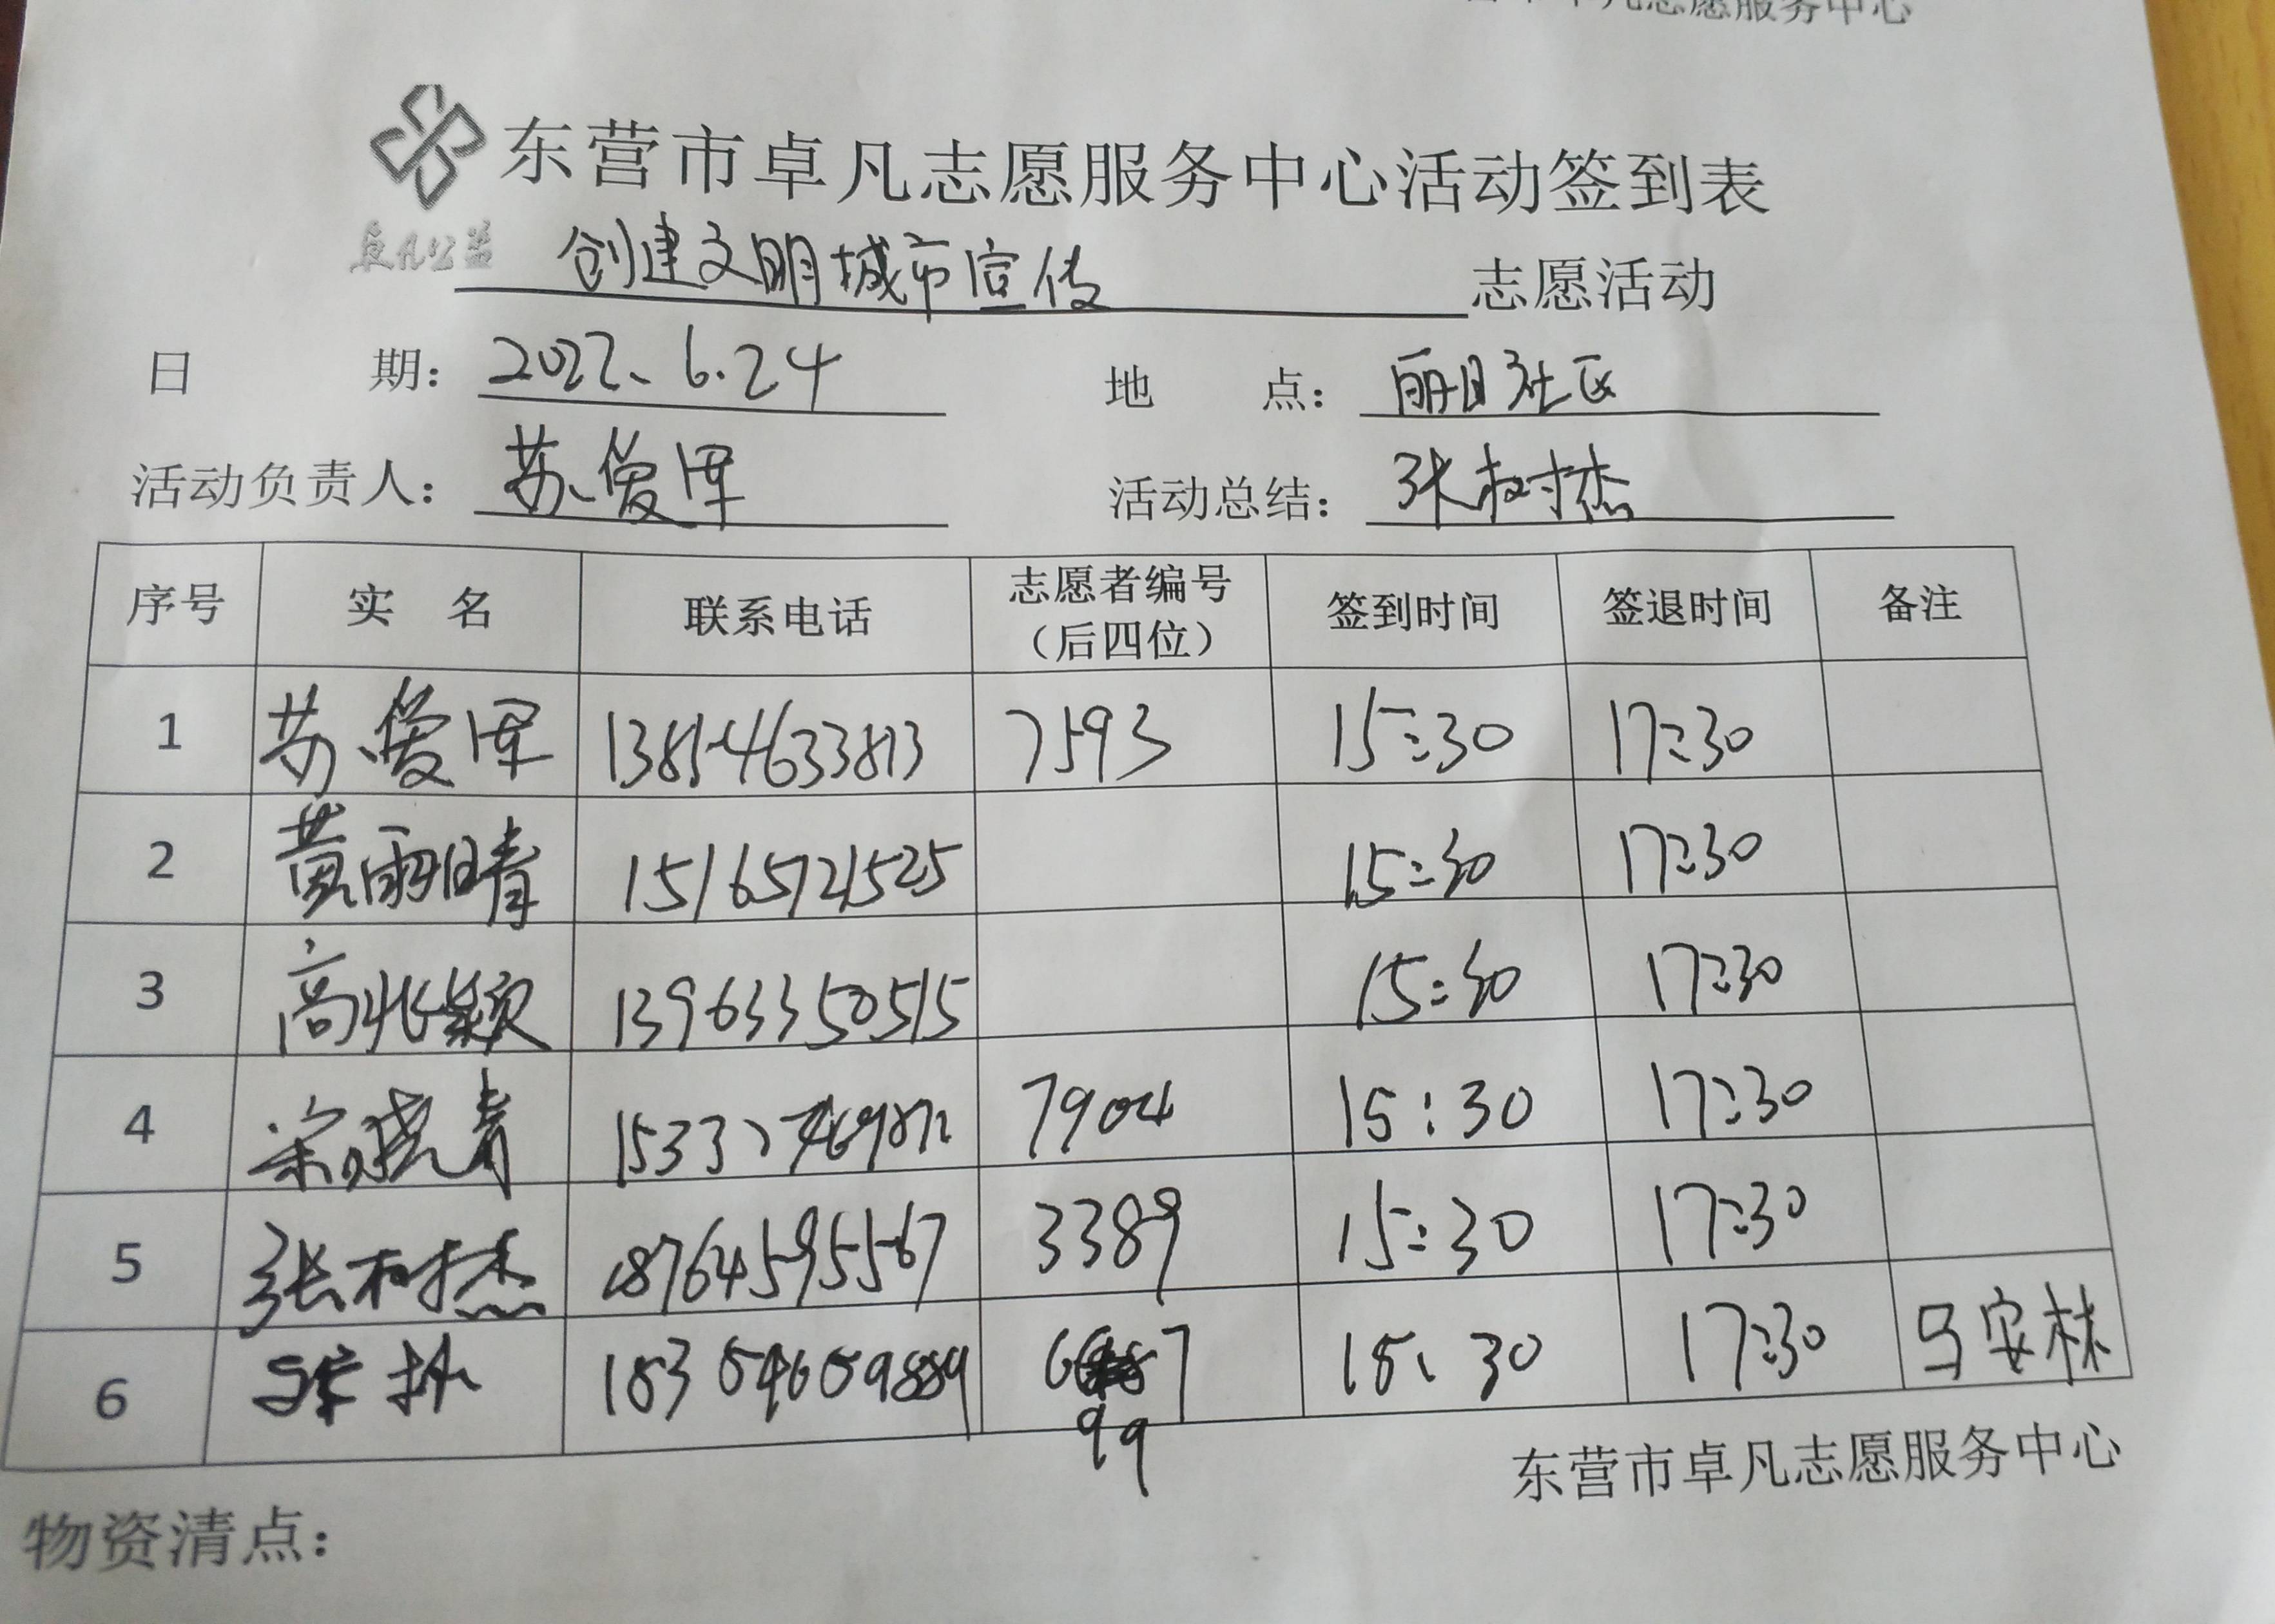 志愿服务中心
东营市卓凡志愿服务中心活动签到表
卓凡公益
创建文明城市宣传 志愿活动
日 期: 2022.6.24 地 点: 丽日社区
活动负责人: 苏爱军 活动总结: 张树杰
序号 实 名 联系电话 志愿者编号(后四位) 签到时间 签退时间 备注
1 苏爱军 7593 15:30 17:30
2 黄丽晴 15165721525 15:30 17:30
3 高兆颖 13963350515 15:30 17:30
4 宋晓青 7904 15:30 17:30
5 张树杰 18764595567 3389 15:30 17:30
6 15:30 17:30 马安林
99
东营市卓凡志愿服务中心
物资清点: